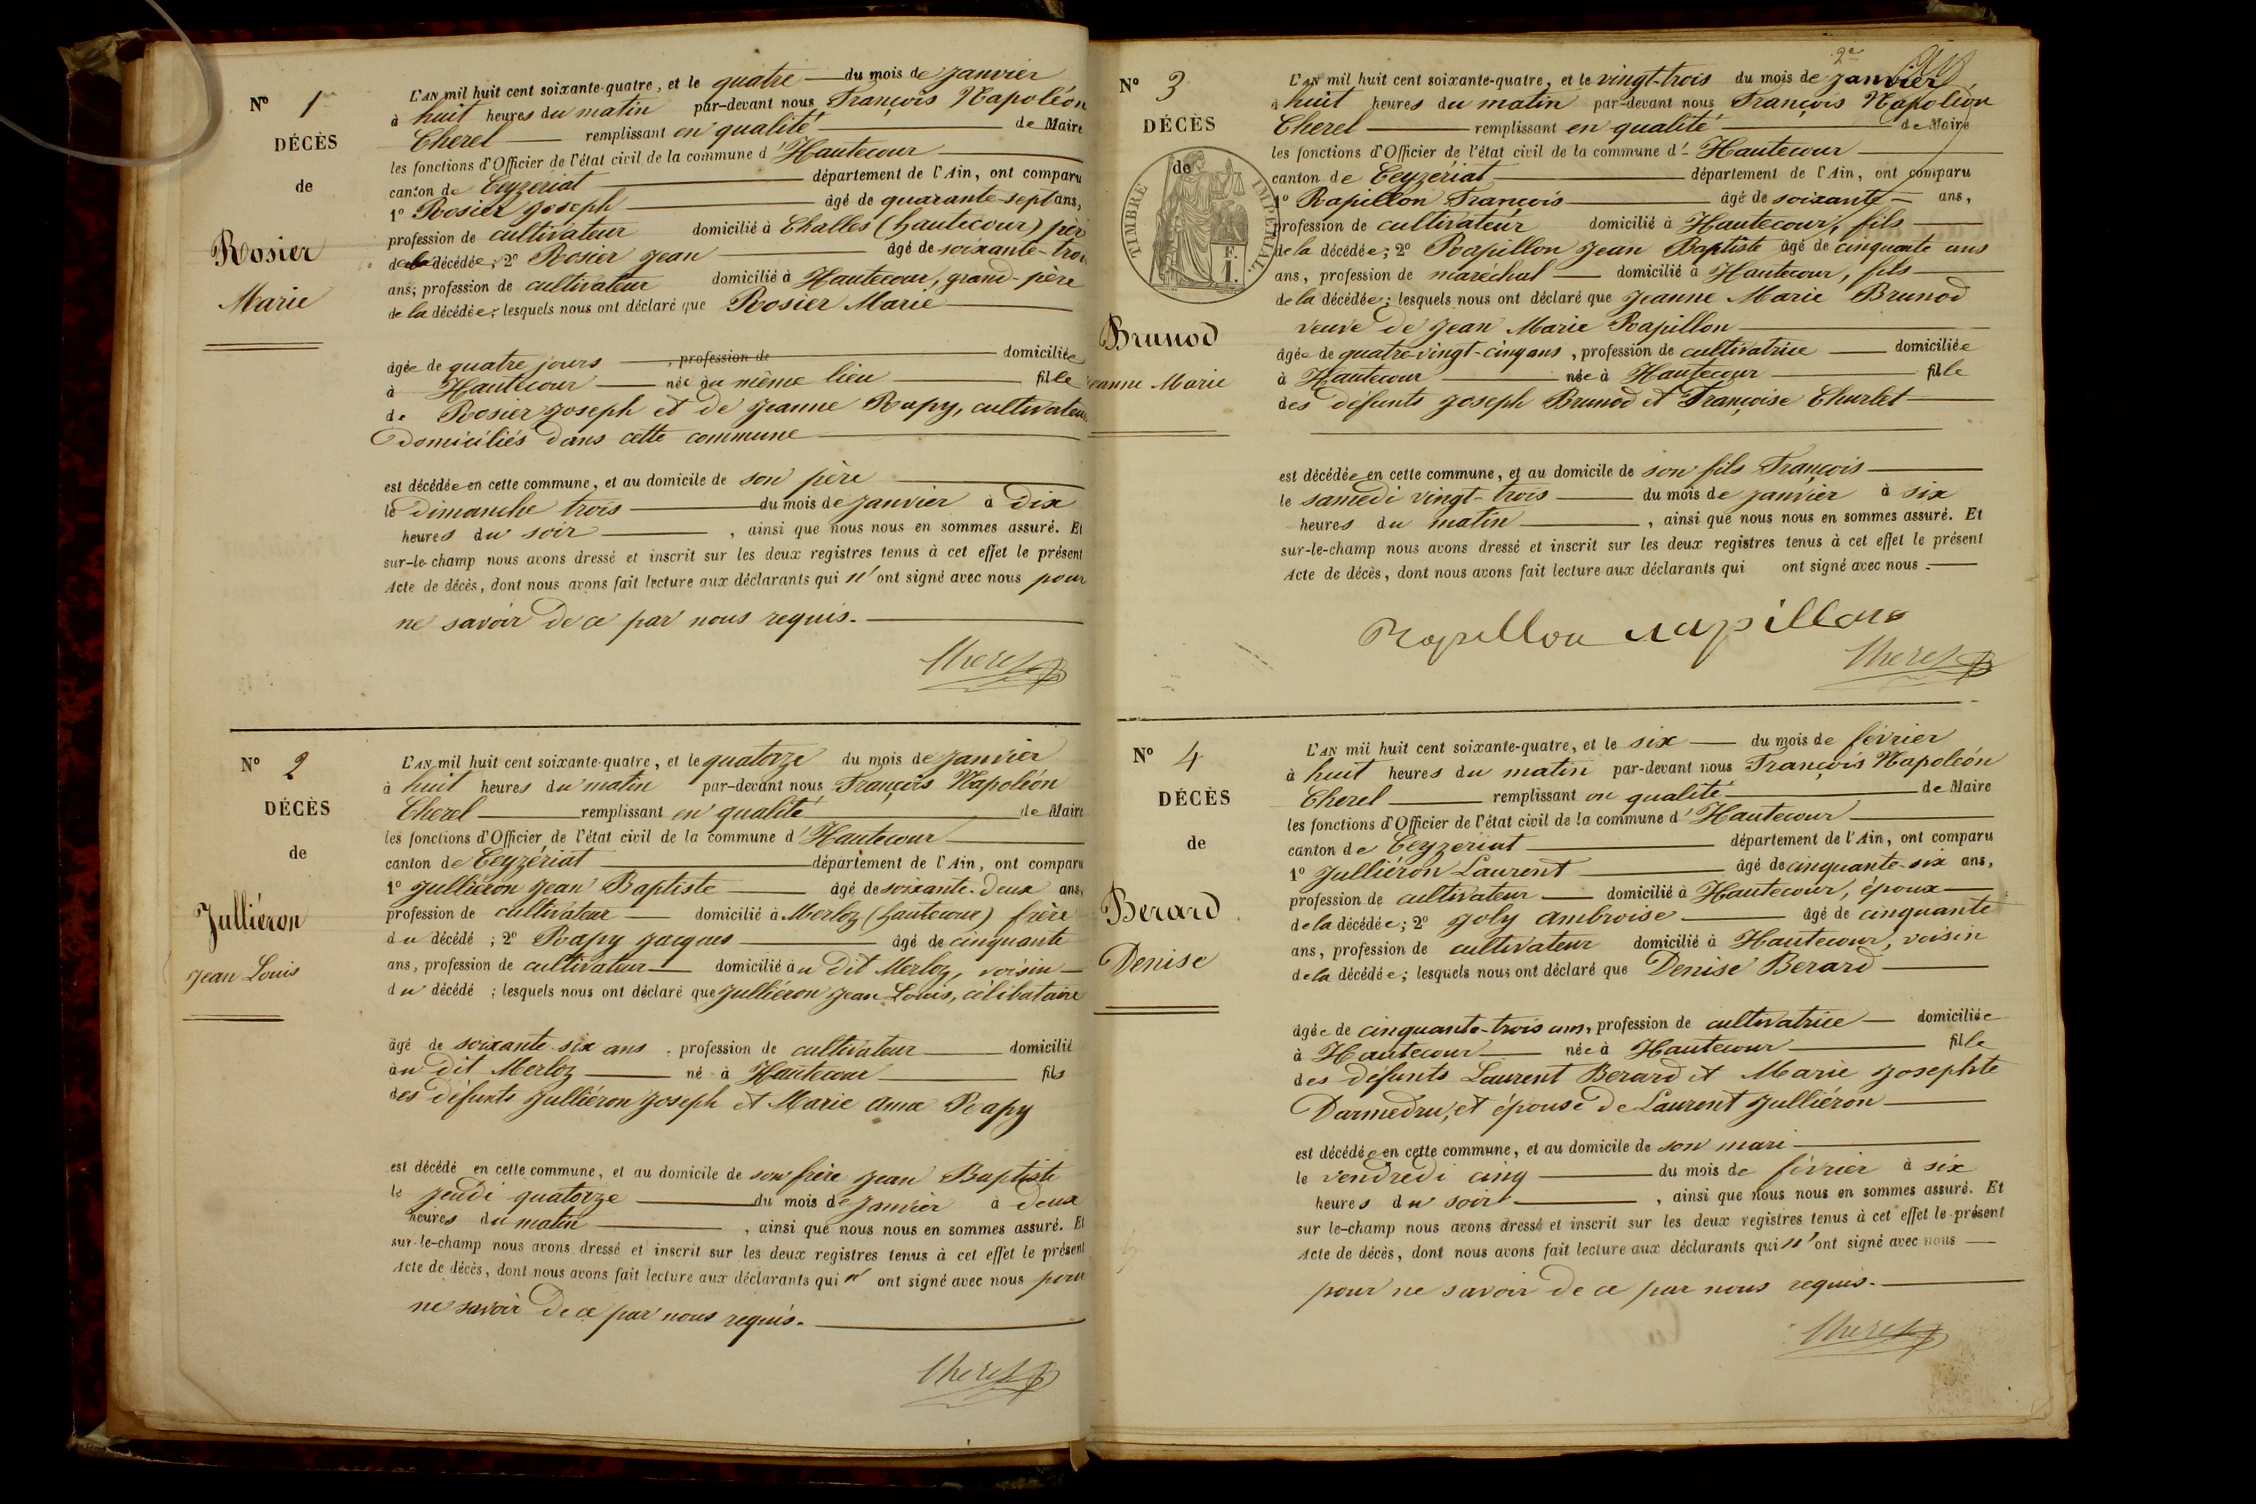 Nº 1
DÉCÈS
de
Rosier
Marie
L'AN mil huit cent soixante-quatre, et le quatre du mois de janvier
à huit heures du matin par-devant nous François Napoléon
Cherel remplissant en qualité de Maire
les fonctions d'Officier de l'état civil de la commune d'Hautecour
canton de Ceyzériat département de l'Ain, ont comparu
1º Rosier Joseph âgé de quarante-sept ans,
profession de cultivateur domicilié à Challes (hautecour) père
de la décédée; 2º Rosier Jean âgé de soixante-trois
ans; profession de cultivateur domicilié à Hautecour, grand-père
de la décédée; lesquels nous ont déclaré que Rosier Marie
âgée de quatre jours, profession de domiciliée
à Hautecour née au même lieu fille
de Rosier Joseph et de Jeanne Rapy, cultivateurs
domiciliés dans cette commune
est décédée en cette commune, et au domicile de son père
le dimanche trois du mois de janvier à dix
heures du soir, ainsi que nous nous en sommes assuré. Et
sur-le-champ nous avons dressé et inscrit sur les deux registres tenus à cet effet le présent
Acte de décès, dont nous avons fait lecture aux déclarants qui n'ont signé avec nous pour
ne savoir de ce par nous requis.
Cherel
Nº 2
DÉCÈS
de
Julliéron
Jean Louis
L'AN mil huit cent soixante-quatre, et le quatorze du mois de janvier
à huit heures du matin par-devant nous François Napoléon
Cherel remplissant en qualité de Maire
les fonctions d'Officier de l'état civil de la commune d'Hautecour
canton de Ceyzériat département de l'Ain, ont comparu
1º Julliéron Jean Baptiste âgé de soixante-deux ans,
profession de cultivateur domicilié à Merloz (hautecour) frère
du décédé; 2º Rapy Jacques âgé de cinquante
ans, profession de cultivateur domicilié au dit Merloz, voisin
du décédé; lesquels nous ont déclaré que Julliéron Jean Louis, célibataire
âgé de soixante-six ans, profession de cultivateur domicilié
au dit Merloz né à Hautecour fils
des défunts Julliéron Joseph et Marie Anne Rapy
est décédé en cette commune, et au domicile de son frère Jean Baptiste
le jeudi quatorze du mois de janvier à deux
heures du matin, ainsi que nous nous en sommes assuré. Et
sur-le-champ nous avons dressé et inscrit sur les deux registres tenus à cet effet le présent
Acte de décès, dont nous avons fait lecture aux déclarants qui n'ont signé avec nous pour
ne savoir de ce par nous requis.
Cherel
2e
Nº 3
DÉCÈS
de
TIMBRE IMPÉRIAL
Brunod
Jeanne Marie
L'AN mil huit cent soixante-quatre, et le vingt-trois du mois de janvier
à huit heures du matin par-devant nous François Napoléon
Cherel remplissant en qualité de Maire
les fonctions d'Officier de l'état civil de la commune d'Hautecour
canton de Ceyzériat département de l'Ain, ont comparu
1º Rapillon François âgé de soixante ans,
profession de cultivateur domicilié à Hautecour, fils
de la décédée; 2º Rapillon Jean Baptiste âgé de cinquante ans
ans, profession de maréchal domicilié à Hautecour, fils
de la décédée; lesquels nous ont déclaré que Jeanne Marie Brunod
veuve de Jean Marie Rapillon
âgée de quatre-vingt-cinq ans, profession de cultivatrice domiciliée
à Hautecour née à Hautecour fille
des défunts Joseph Brunod et Françoise Churlet
est décédée en cette commune, et au domicile de son fils François
le samedi vingt-trois du mois de janvier à six
heures du matin, ainsi que nous nous en sommes assuré. Et
sur-le-champ nous avons dressé et inscrit sur les deux registres tenus à cet effet le présent
Acte de décès, dont nous avons fait lecture aux déclarants qui ont signé avec nous.
Rapillon rapillon
Cherel
Nº 4
DÉCÈS
de
Berard
Denise
L'AN mil huit cent soixante-quatre, et le six du mois de février
à huit heures du matin par-devant nous François Napoléon
Cherel remplissant en qualité de Maire
les fonctions d'Officier de l'état civil de la commune d'Hautecour
canton de Ceyzériat département de l'Ain, ont comparu
1º Julliéron Laurent âgé de cinquante-six ans,
profession de cultivateur domicilié à Hautecour, époux
de la décédée; 2º Joly Ambroise âgé de cinquante
ans, profession de cultivateur domicilié à Hautecour, voisin
de la décédée; lesquels nous ont déclaré que Denise Berard
âgée de cinquante-trois ans, profession de cultivatrice domiciliée
à Hautecour née à Hautecour fille
des défunts Laurent Berard et Marie Josephte
Darmedru, et épouse de Laurent Julliéron
est décédée en cette commune, et au domicile de son mari
le vendredi cinq du mois de février à six
heures du soir, ainsi que nous nous en sommes assuré. Et
sur-le-champ nous avons dressé et inscrit sur les deux registres tenus à cet effet le présent
Acte de décès, dont nous avons fait lecture aux déclarants qui n'ont signé avec nous
pour ne savoir de ce par nous requis.
Cherel